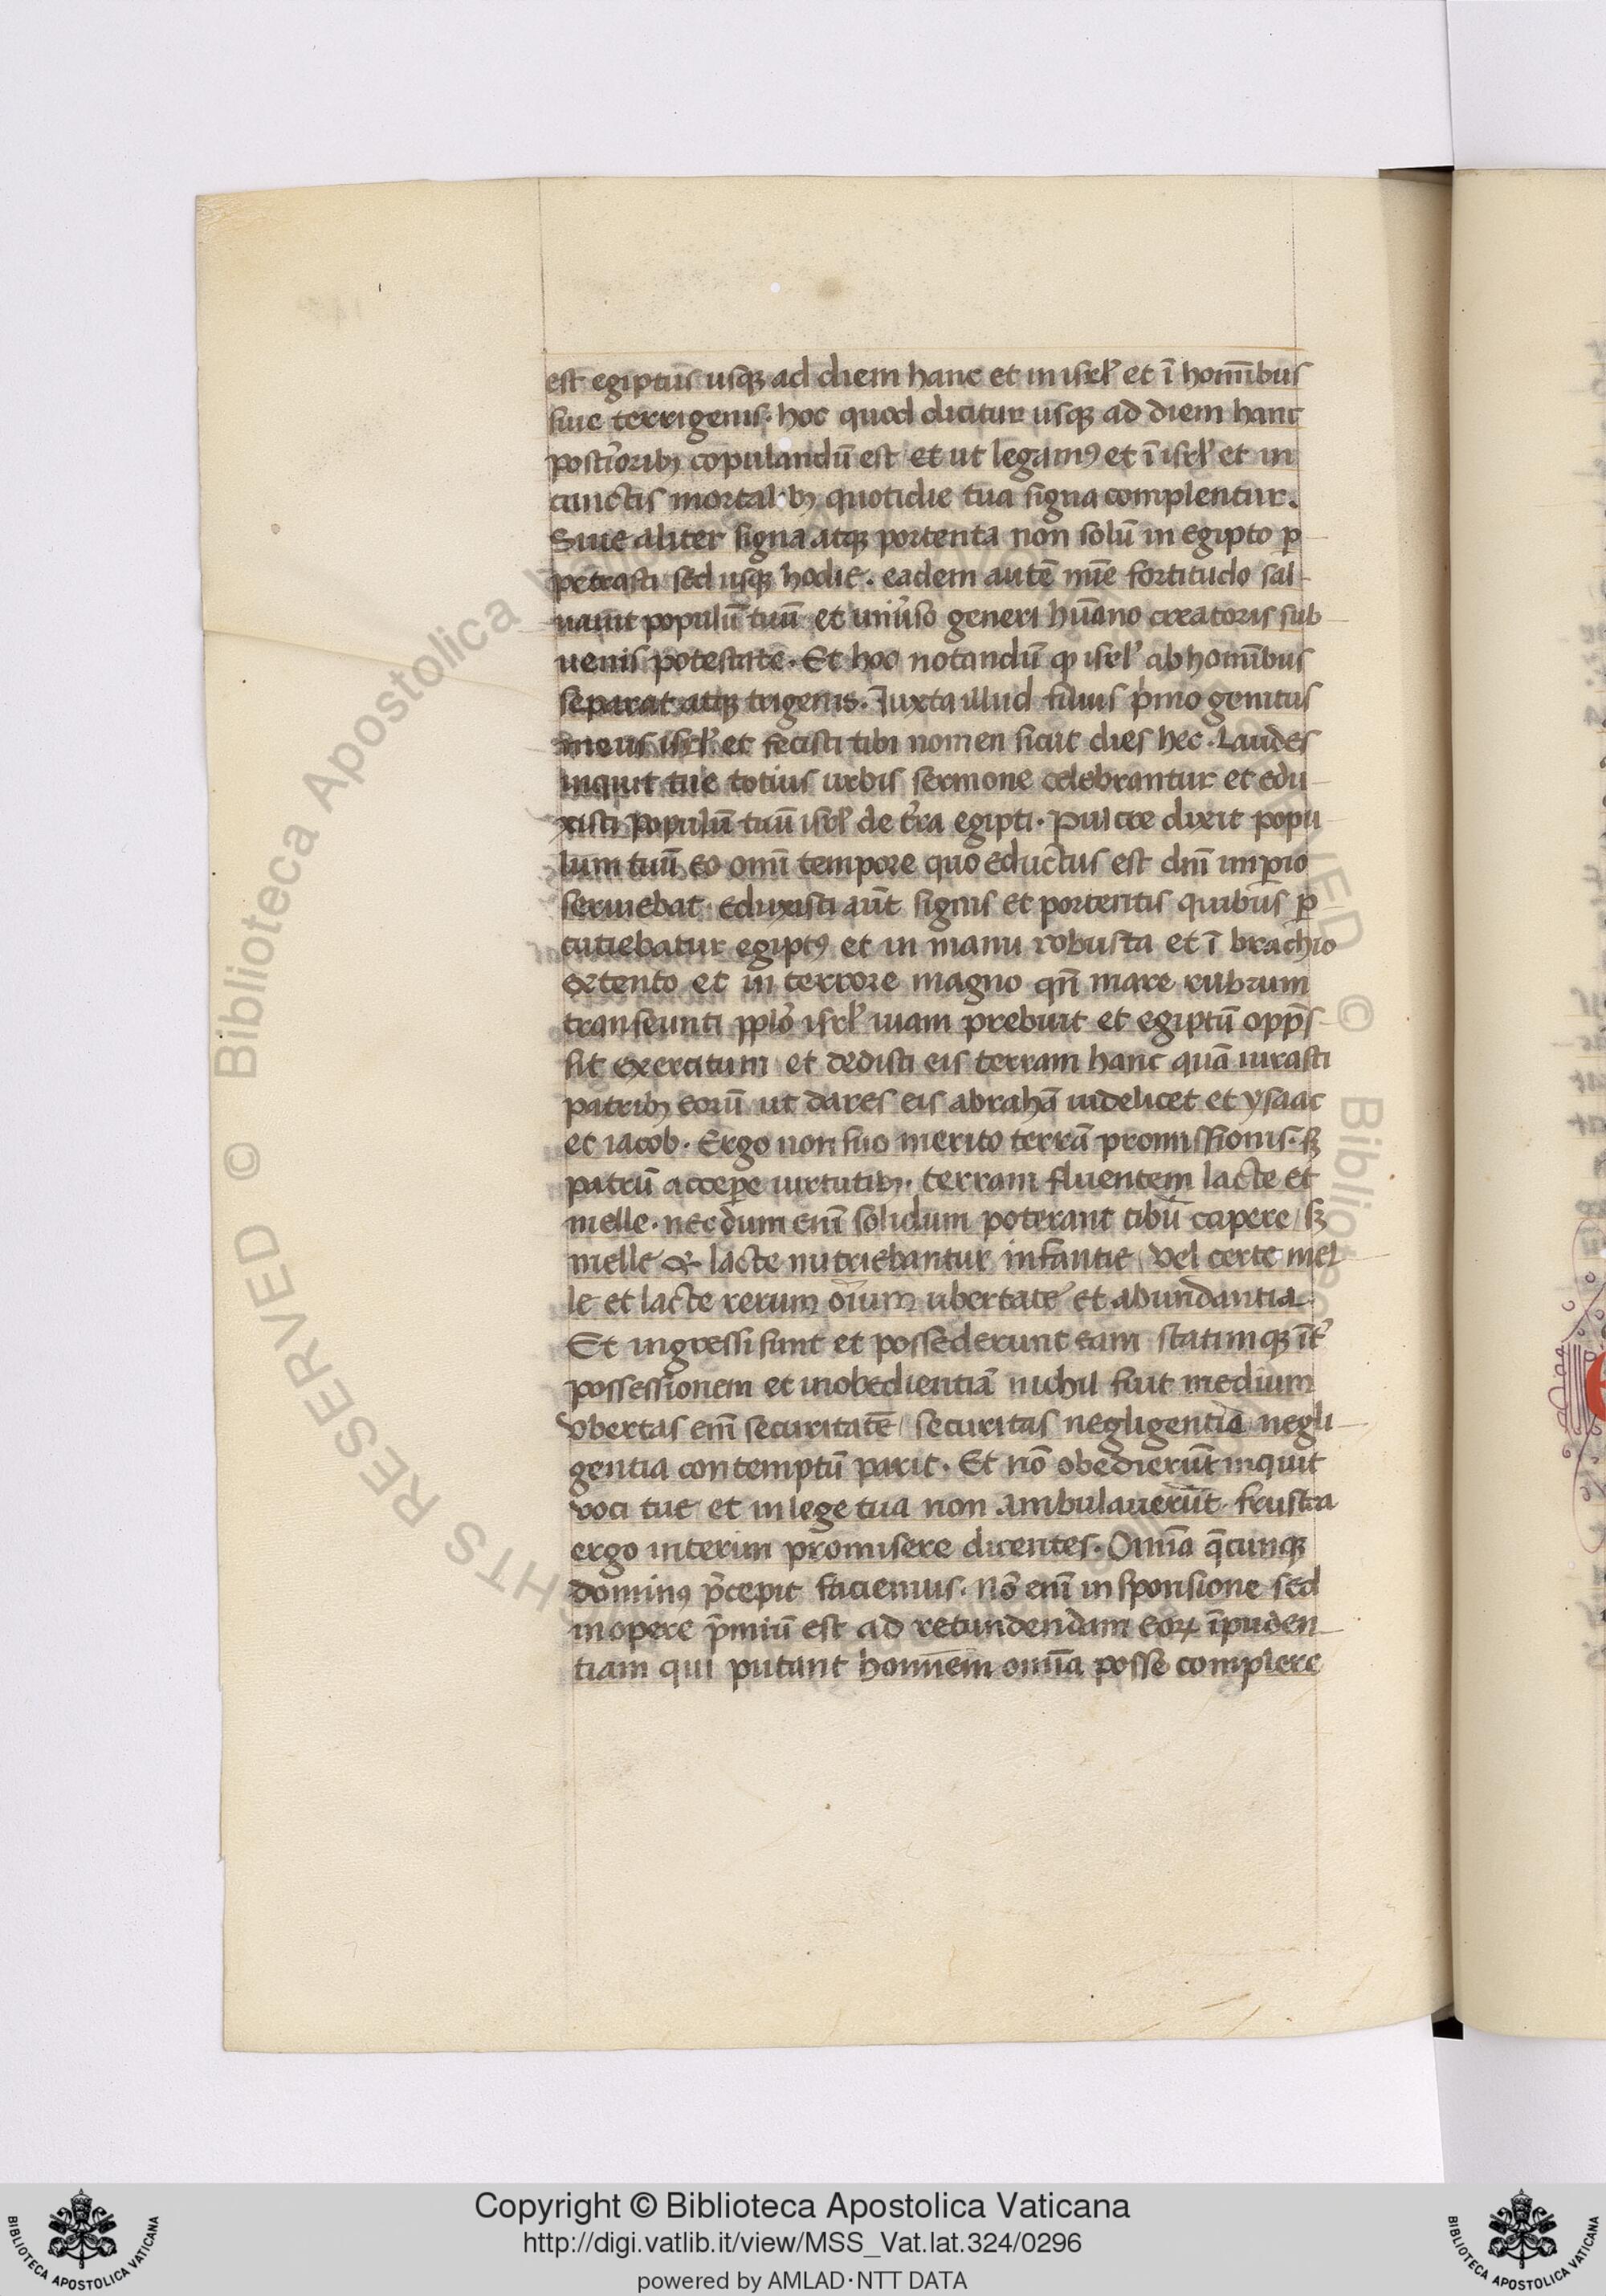 est egiptus usqꝫ ad diem hanc et in isrl̓ et ī homībus
siue terrigenis. hoc quod dicitur usqꝫ ad diem hanc
post̓oribꝫ copulandū est et ut legamꝰ et ī isrl̓ et in
cunctis mortalibꝫ quotidie tua signa complentur.
Siue aliter signa atqꝫ portenta non solū in egipto ꝑ
petrasti sed usqꝫ hodie. eadem autē nūc fortitudo sal
uauit populū tuū et uniu̓so generi hūano creatoris sub
uenis potestate. Et hoc notandū ꝙ isrl̓ ab homībus
separat atqꝫ trigenis. Iuxta illud filius pͥmo genitus
meus isrl̓ et fecisti tibi nomen sicut dies hec. Laudes
inquit tue totius urbis sermone celebrantur et edu
xisti populū tuū isrl̓ de t̓ra egipti. Pulcre dixit popu
lum tuū eo om̄i tempore quo eductus est dn̄i imꝑio
seruiebat. Eduxisti aūt signis et portentis quibus ꝑ
cutiebatur egiptꝰ et in manu robusta et ī brachio
extento et in terrore magno qn̄ mare rubrum
transeunti pplo̓ isrl̓ uiam prebuit et egiptū opp̄s
sit exercitum et dedisti eis terram hanc quā iurasti
patribꝫ eorū ut dares eis abrahā uidelicet et ysaac
et iacob. Ergo non suo merito terrā promissionis. sꝫ
patrū acceꝑe uirtutibꝫ. terram fluentem lacte et
melle. necdum enī solidum poterant cibū capere / sꝫ
melle & lacte nutriebantur infantie / vel certe mel
le et lacte rerum oīum ubertate et abundantia.
Et ingressi sunt et possederunt eam statimqꝫ īt̓
possessionem et inobedientiā nichil fuit medium
vbertas em̄ securitatē / securitas negligentiā negli
gentia contemptū parit. Et nō obedierūt inquit
voci tue et in lege tua non ambulauerūt. frustra
ergo interim promisere dicentes. Omīa q̄cunqꝫ
dominꝰ p̄cepit faciemus. nō enī in sponsione sed
in opere p̄miū est ad retundendam eoꝝ īpuden
tiam qui putant hominem omīa posse complere
Copyright © Biblioteca Apostolica Vaticana
http://digi.vatlib.it/view/MSS_Vat.lat.324/0296
powered by AMLAD·NTT DATA